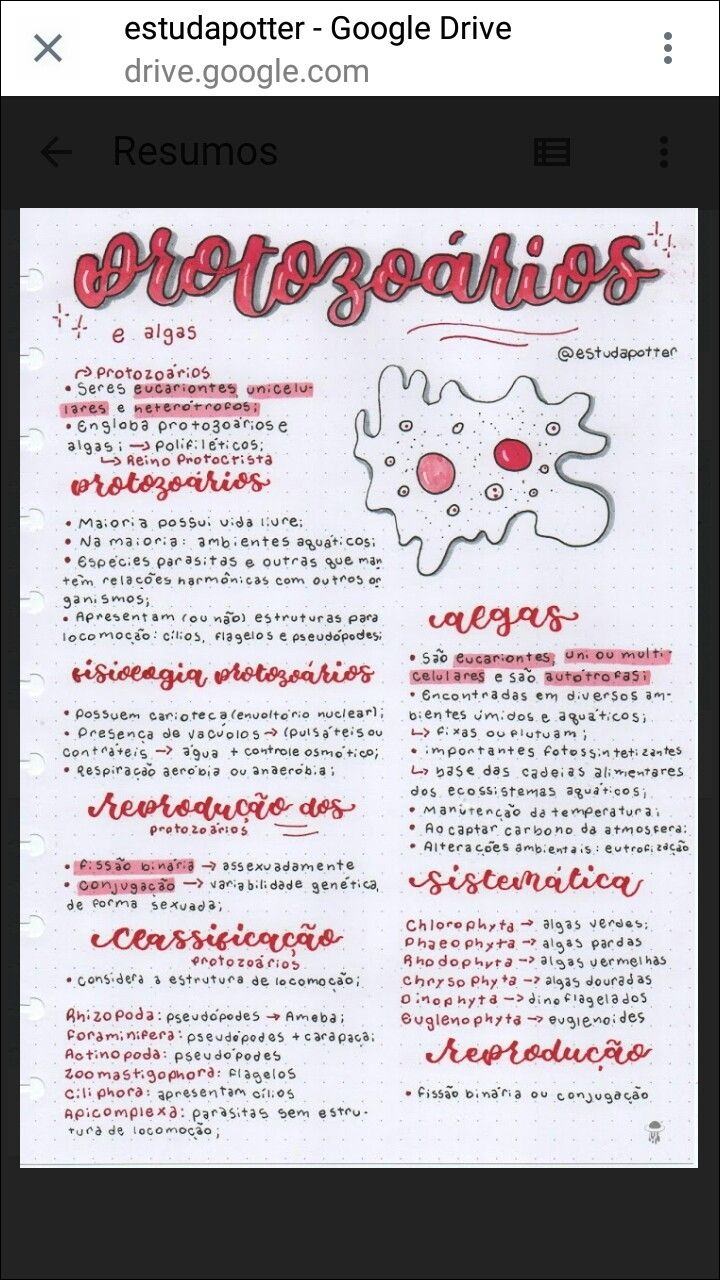 estudapotter - Google Drive
drive.google.com
Resumos
protozoários
e algas
@estudapotter
↱ Protozoários
• Seres eucariontes, unicelu-
lares e heterótrofos;
• Engloba protozoários e
algas; → Polifiléticos;
↳ Reino Protoctista
protozoários
• Maioria possui vida livre;
• Na maioria: ambientes aquáticos;
• Espécies parasitas e outras que man
tém relações harmônicas com outros or
ganismos;
• Apresentam (ou não) estruturas para
locomoção: cílios, flagelos e pseudópodes;
fisiologia protozoários
• Possuem carioteca (envoltório nuclear);
• Presença de vacúolos → (pulsáteis ou
contráteis → água + controle osmótico;
• Respiração aeróbia ou anaeróbia;
reprodução dos
protozoários
• Fissão binária → assexuadamente
• Conjugação → variabilidade genética,
de forma sexuada;
classificação
protozoários
• Considera a estrutura de locomoção;
Rhizopoda: pseudópodes → Ameba;
Foraminifera: pseudópodes + carapaça;
Actinopoda: pseudópodes
Zoomastigophora: flagelos
Ciliphora: apresentam cílios
Apicomplexa: parasitas sem estru-
tura de locomoção;
algas
• São eucariontes, uni ou multi-
celulares e são autótrofas;
• Encontradas em diversos am-
bientes úmidos e aquáticos;
↳ fixas ou flutuam;
• importantes fotossintetizantes
↳ base das cadeias alimentares
dos ecossistemas aquáticos;
• Manutenção da temperatura;
• Ao captar carbono da atmosfera;
• Alterações ambientais: eutrofização
sistemática
Chlorophyta → algas verdes;
Phaeophyta → algas pardas
Rhodophyta → algas vermelhas
Chrysophyta → algas douradas
Dinophyta → dinoflagelados
Euglenophyta → euglenoides
reprodução
• Fissão binária ou conjugação